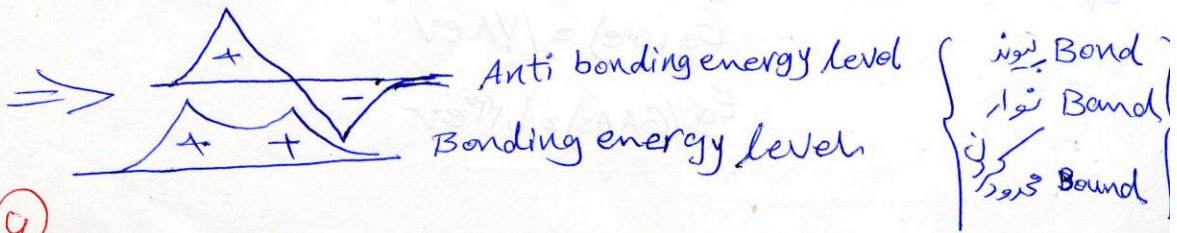 ⇒ + - Anti bonding energy level
+ + Bonding energy level
پیوند Bond
نوار Band
محدود کردن Bound
۹